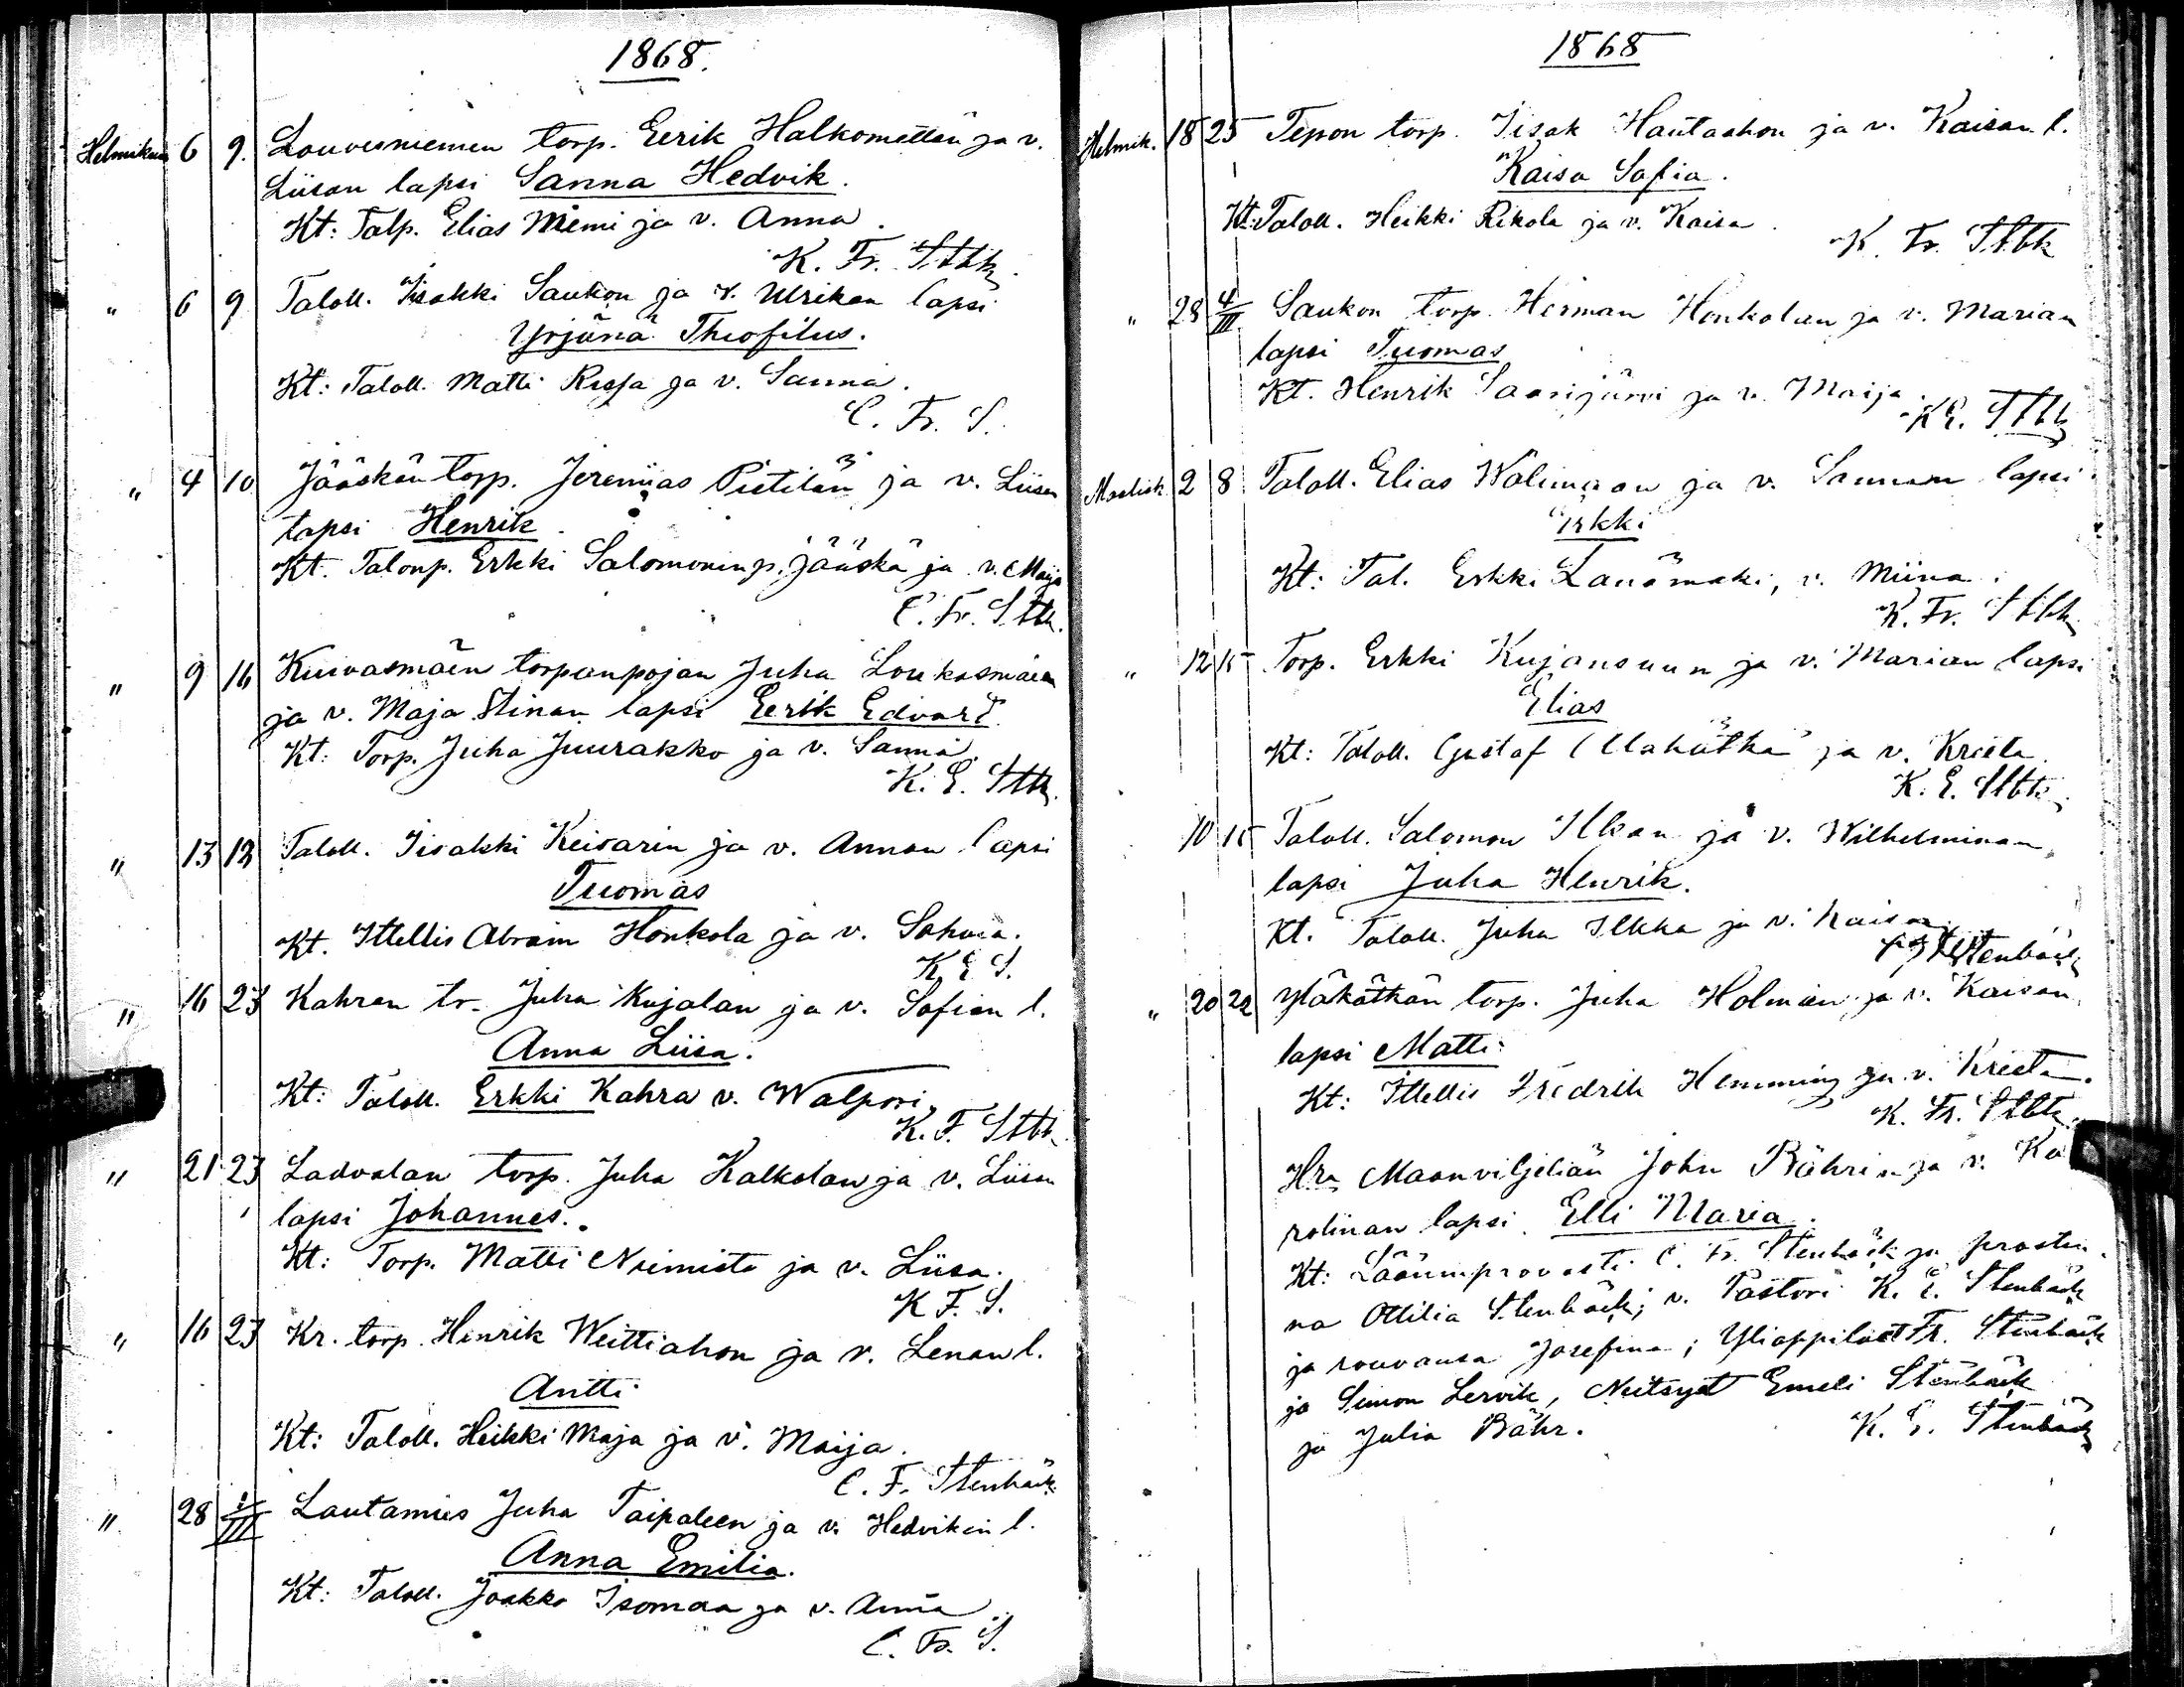 1868.
Helmikuu 6 9. Louvesniemen torp. Eerik Halkomettän ja v.
Liisan lapsi Sanna Hedvik.
Kt: Talp. Elias Niemi ja v. Anna.
K. Fr. Stbk.
" 6 9 Taloll. Iisakki Saukon ja v. Ulrikan lapsi
Yrjänä Theofilus.
Kt: Taloll. Matti Russa ja v. Sanna.
C. Fr. S.
" 4 10 Jääskän torp. Jeremias Pietilän ja v. Liisan
lapsi Henrik.
Kt. Talonp. Erkki Salomoninp. Jääskä ja v. Maija
C. Fr. Stbk.
" 9 16 Kuivasmäen torpanpojan Juha Loukasmäen
ja v. Maja Stinan lapsi Eerik Edvard.
Kt: Torp. Juha Juurakko ja v. Sanna.
K. E. Stbk.
" 13 18 Taloll. Iisakki Keisarin ja v. Annan lapsi
Tuomas
Kt. Ittellis Abram Honkola ja v. Sohvia.
K. E. S.
" 16 23 Kahran tr. Juha Kujalan ja v. Sofian l.
Anna Liisa.
Kt: Taloll. Erkki Kahra v. Walpori.
K. F. Stbk.
" 21 23 Ladvalan torp. Juha Kalkolan ja v. Liisan
lapsi Johannes.
Kt: Torp. Matti Niemistö ja v. Liisa.
K F. S.
" 16 23 Kr. torp. Henrik Weittiahon ja v. Lenan l.
Antti
Kt: Taloll. Heikki Maja ja v. Maija.
C. F. Stenbäck
" 28 1/III Lautamies Juha Taipaleen ja v. Hedvikin l.
Anna Emilia.
Kt: Taloll. Jaakko Isomaa ja v. Anna
C. Fr. S.
1868
Helmik. 18 25 Tepon torp. Iisak Hautaahon ja v. Kaisan l.
Kaisa Sofia.
Kt: Taloll. Heikki Rikola ja v. Kaisa.
K. Fr. Stbk
" 28 4/III Saukon torp. Herman Honkolan ja v. Marian
lapsi Tuomas
Kt. Henrik Saarijärvi ja v. Maija.
K E. Stbk
Maalisk. 2 8 Taloll. Elias Wälimaan ja v. Sannan lapsi
Erkki
Kt: Tal. Erkki Lanömäki, v. Miina.
K. Fr. Stbk.
" 12 15 Torp. Erkki Kujansuun ja v. Marian lapsi
Elias
Kt: Taloll. Gustaf Alakätkä ja v. Kriita.
K. E. Stbk.
10 15 Taloll. Salomon Ilkan ja v. Wilhelminan
lapsi Juha Henrik.
Kt. Taloll. Juha Ilkka ja v. Kaisa.
Stenbäck
" 20 22 Yläkätkän torp. Juha Holmin ja v. Kaisan
lapsi Matti.
Kt: Ittellis Fredrik Hemming ja v. Kriita.
K. Fr. Stbk.
Hra Maanviljeliän John Bährin ja v. Ka
rolinan lapsi Elli Maria.
Kt: Lääninprovasti C. Fr. Stenbäck ja prostin
na Ottilia Stenbäck; v. Pastori K. E. Stenbäck
ja rouvansa Josefina; Ylioppilaat Fr. Stenbäck
ja Simon Lervik, Neitsyet Emeli Stenbäck
ja Julia Bähr.
K. E. Stenbäck